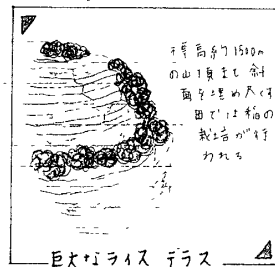 標高約1500m
の山頂まで斜
面を埋め尽くす
田では稲の
栽培が行
われる
巨大なライス テラス